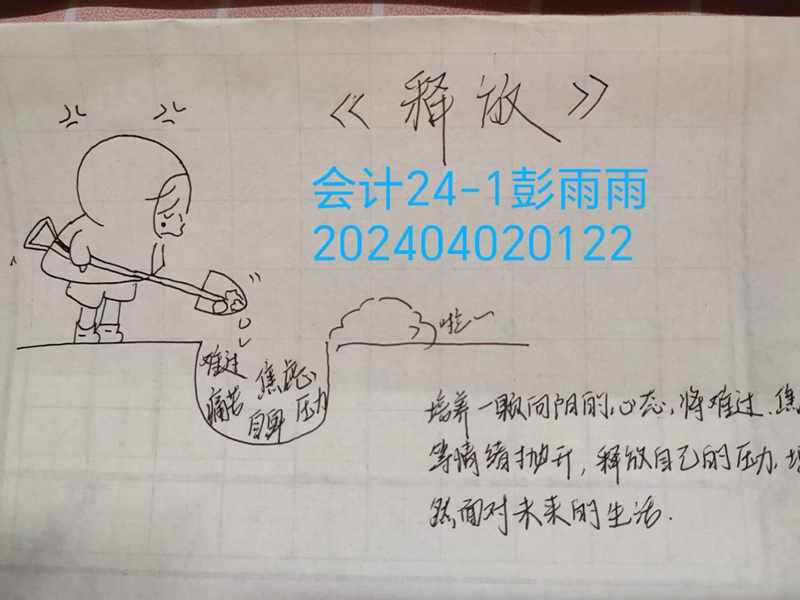 《释放》
会计24-1彭雨雨
202404020122
啦~
难过 焦虑
痛苦 自卑 压力
培养一颗向阳的心态,将难过.焦
等情绪抛开,释放自己的压力.坦
然面对未来的生活.